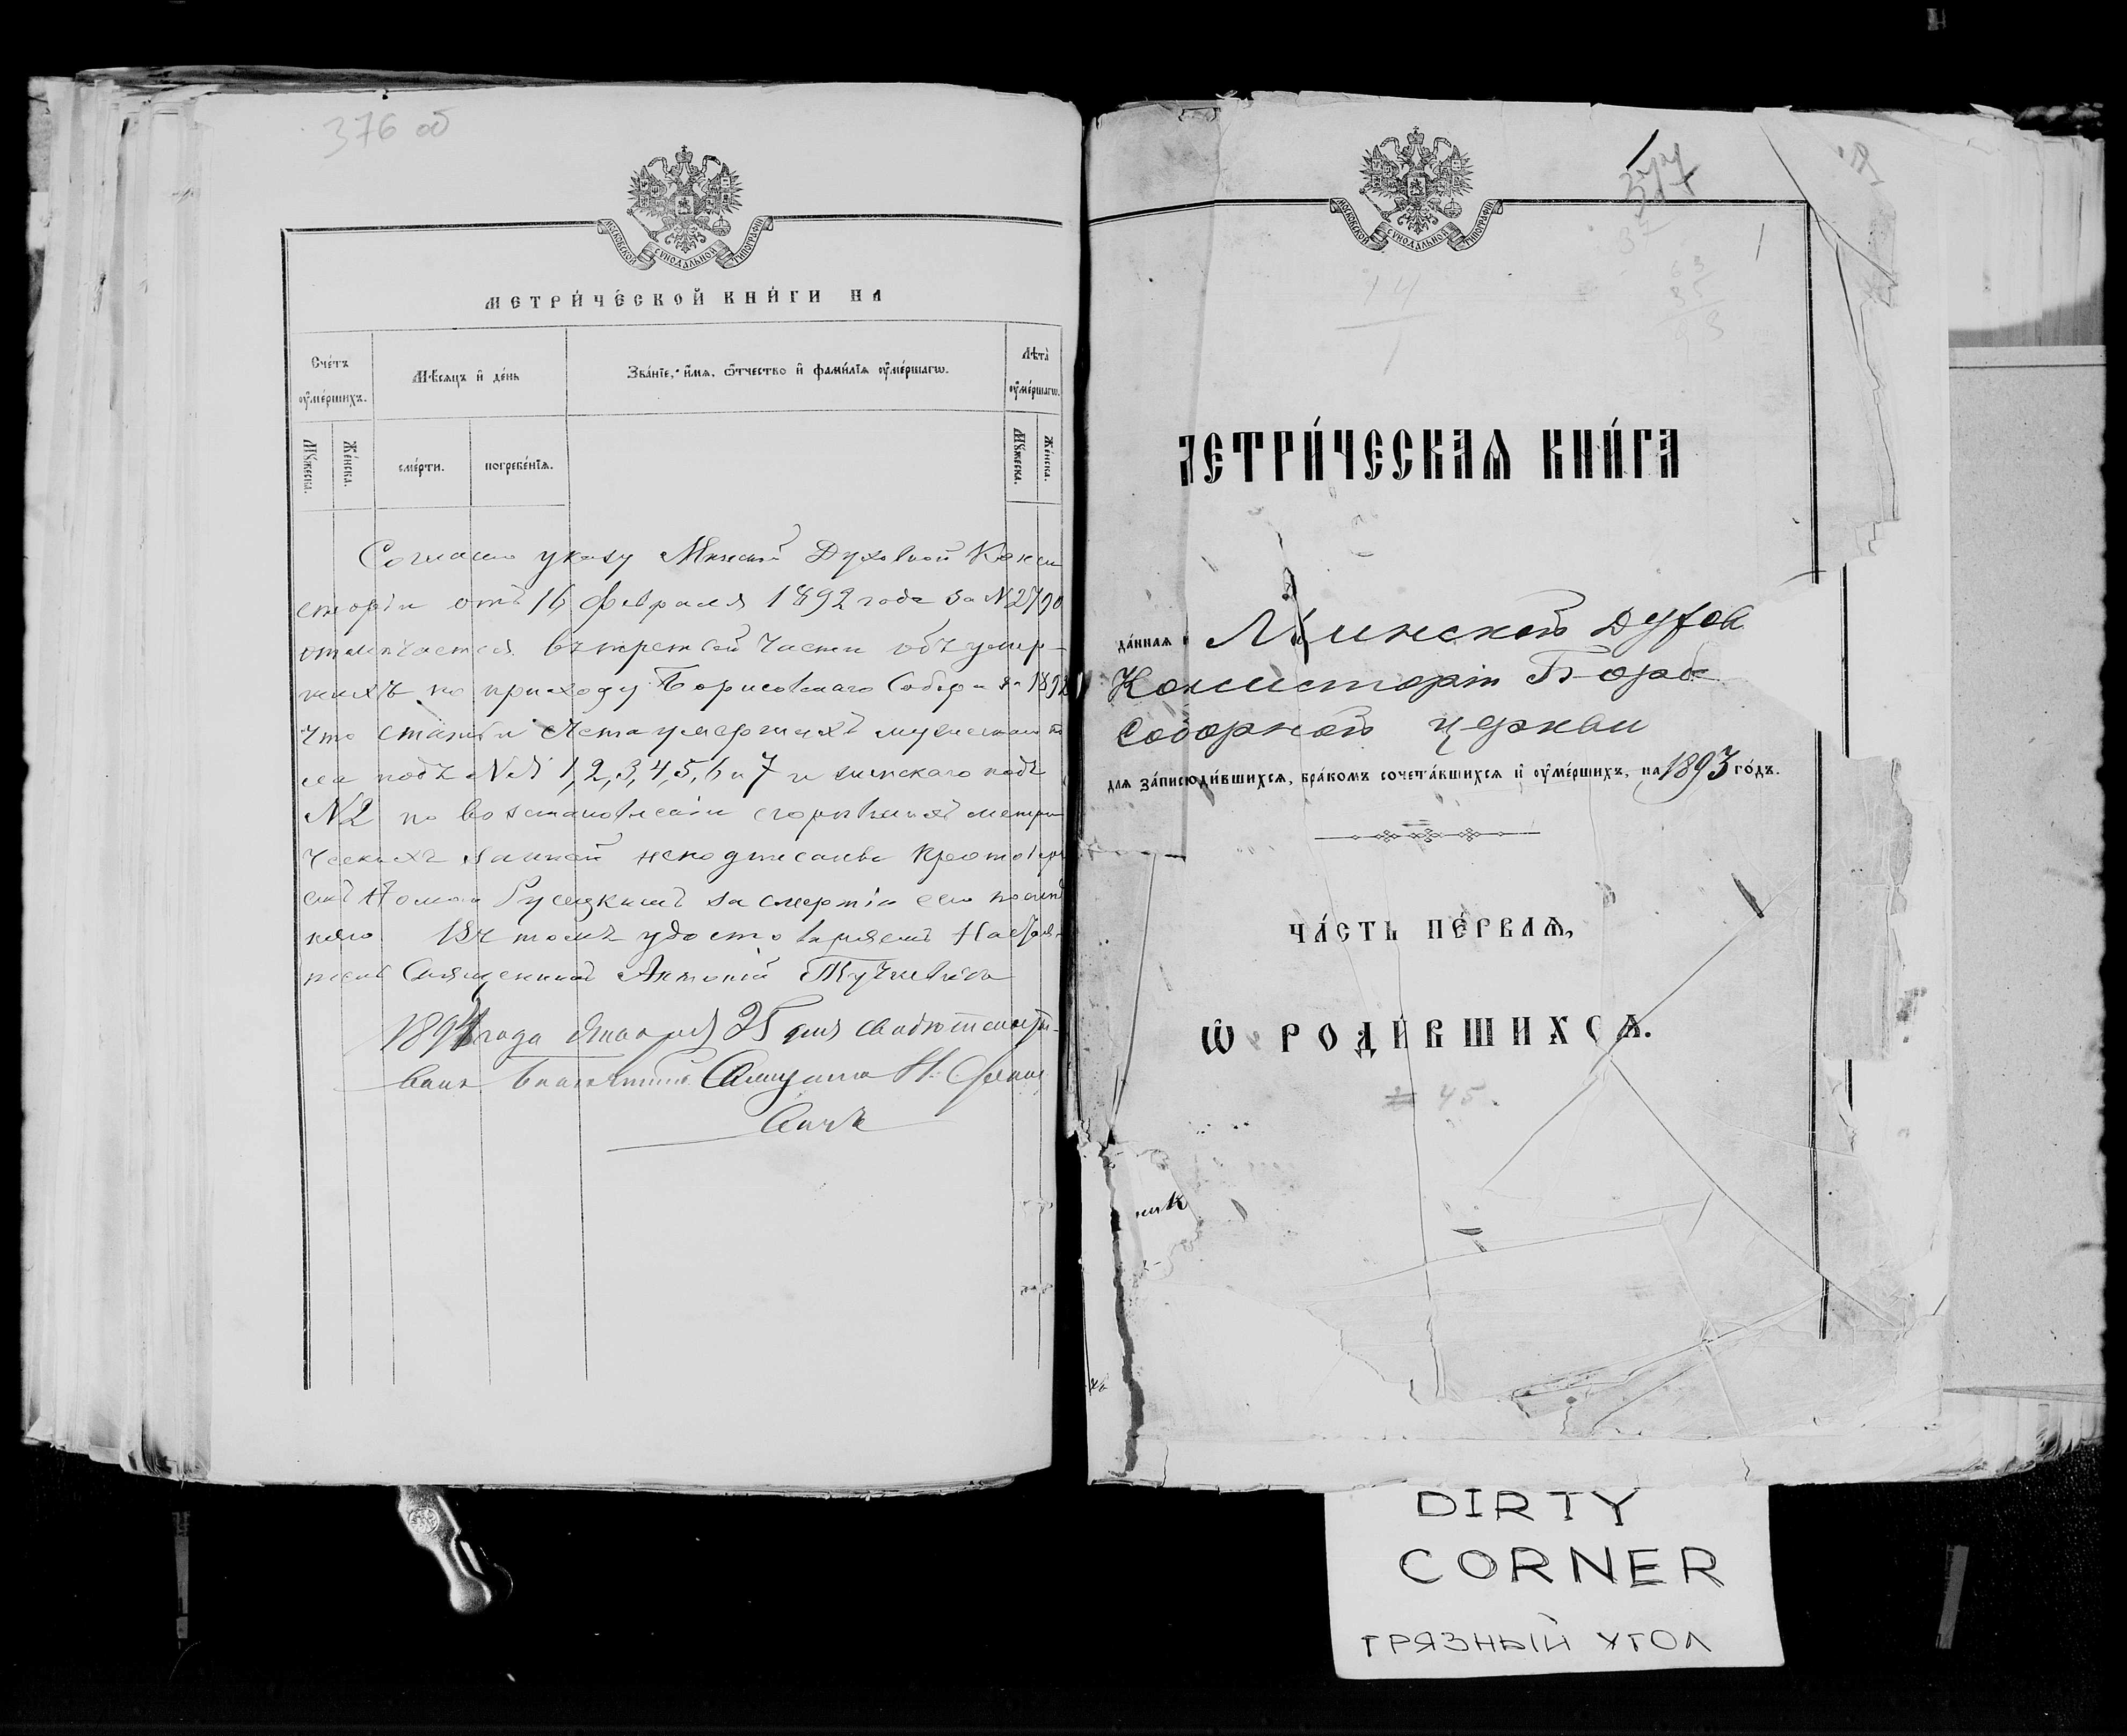 376 об
МОСКОВСКОЙ СѴНОДАЛЬНОЙ ТИПОГРАФІИ
МЕТРИ́ЧЕСКОЙ КНИ́ГИ НА
Сче́тъ ᲂу҆ме́ршихъ.
Мѣ́сяцъ и҆ де́нь
Зва́нїе, и҆́мѧ, ѻ҆́тчество и҆ фами́лїѧ ᲂу҆ме́ршагѡ.
Лѣта̀ ᲂу҆ме́ршагѡ.
Мꙋ́жеска.
Же́нска.
сме́рти.
погребе́нїѧ.
Мꙋ́жеска.
Же́нска.
Согласно указу Минской Духовной Конси
сторіи отъ 16 Февраля 1892 года за №2790
отмѣчается въ третьей части объ умер-
шихъ по приходу Борисовскаго Собора за 1892
что статьи счета умершихъ мужескаго по
ла подъ №№ 1, 2, 3, 4, 5, 6 и 7 и женскаго подъ
№2 по возстановленіи сгорѣвшихъ метри
ческихъ записей неподписаны Протоіере
емъ Русецкимъ за смертію его послѣд
няго въ томъ удостовѣряемъ Настоя-
тель Священникъ Антоній
1894 года Января 25 дня свидѣтельство-
валъ Благочинный Священникъ Н.
вичъ
МОСКОВСКОЙ СѴНОДАЛЬНОЙ ТИПОГРАФІИ
1
14
1
ЕТРИ́ЧЕСКАѦ КНИ́ГА
да́ннаѧ Минской Духов
Консисторіи Бори
Соборной церкви
для за́писи роди́вшихсѧ, бра́комъ сочета́вшихсѧ и҆ ᲂу҆ме́ршихъ, на 1893 го́дъ.
ЧА́СТЬ ПЕ́РВАѦ,
Ѡ҆ РОДИ́ВШИХСѦ.
45.
ник
DIRTY
CORNER
ГРЯЗНЫЙ УГОЛ